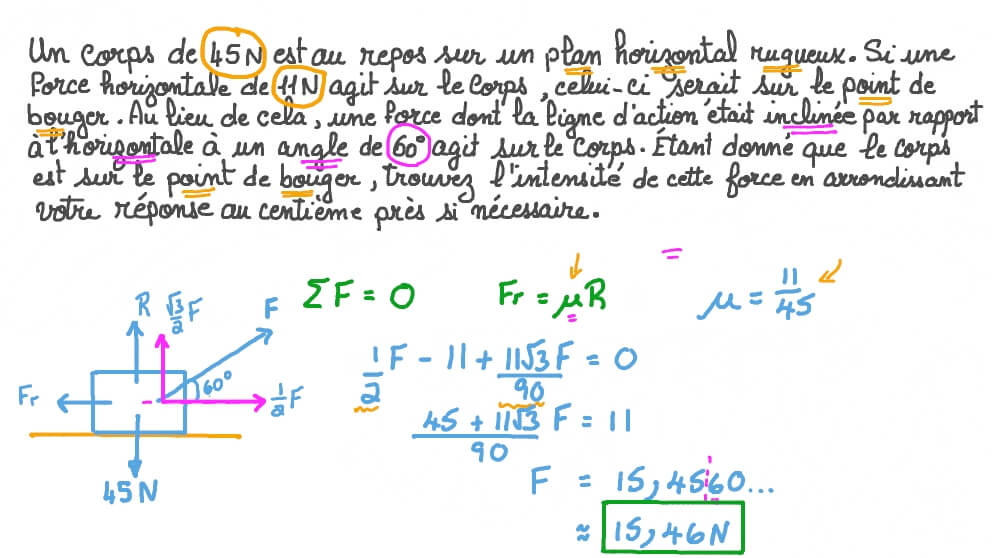 Un corps de 45N est au repos sur un plan horizontal rugueux. Si une
force horizontale de 11N agit sur le corps, celui-ci serait sur le point de
bouger. Au lieu de cela, une force dont la ligne d'action était inclinée par rapport
à l'horizontale à un angle de 60° agit sur le corps. Étant donné que le corps
est sur le point de bouger, trouvez l'intensité de cette force en arrondissant
votre réponse au centième près si nécessaire.
ΣF = 0
Fr = μR
μ = 11/45
R
√3/2 F
F
60°
Fr
1/2 F
45N
1/2 F - 11 + 11√3/90 F = 0
45 + 11√3/90 F = 11
F = 15,4560...
≈ 15,46N